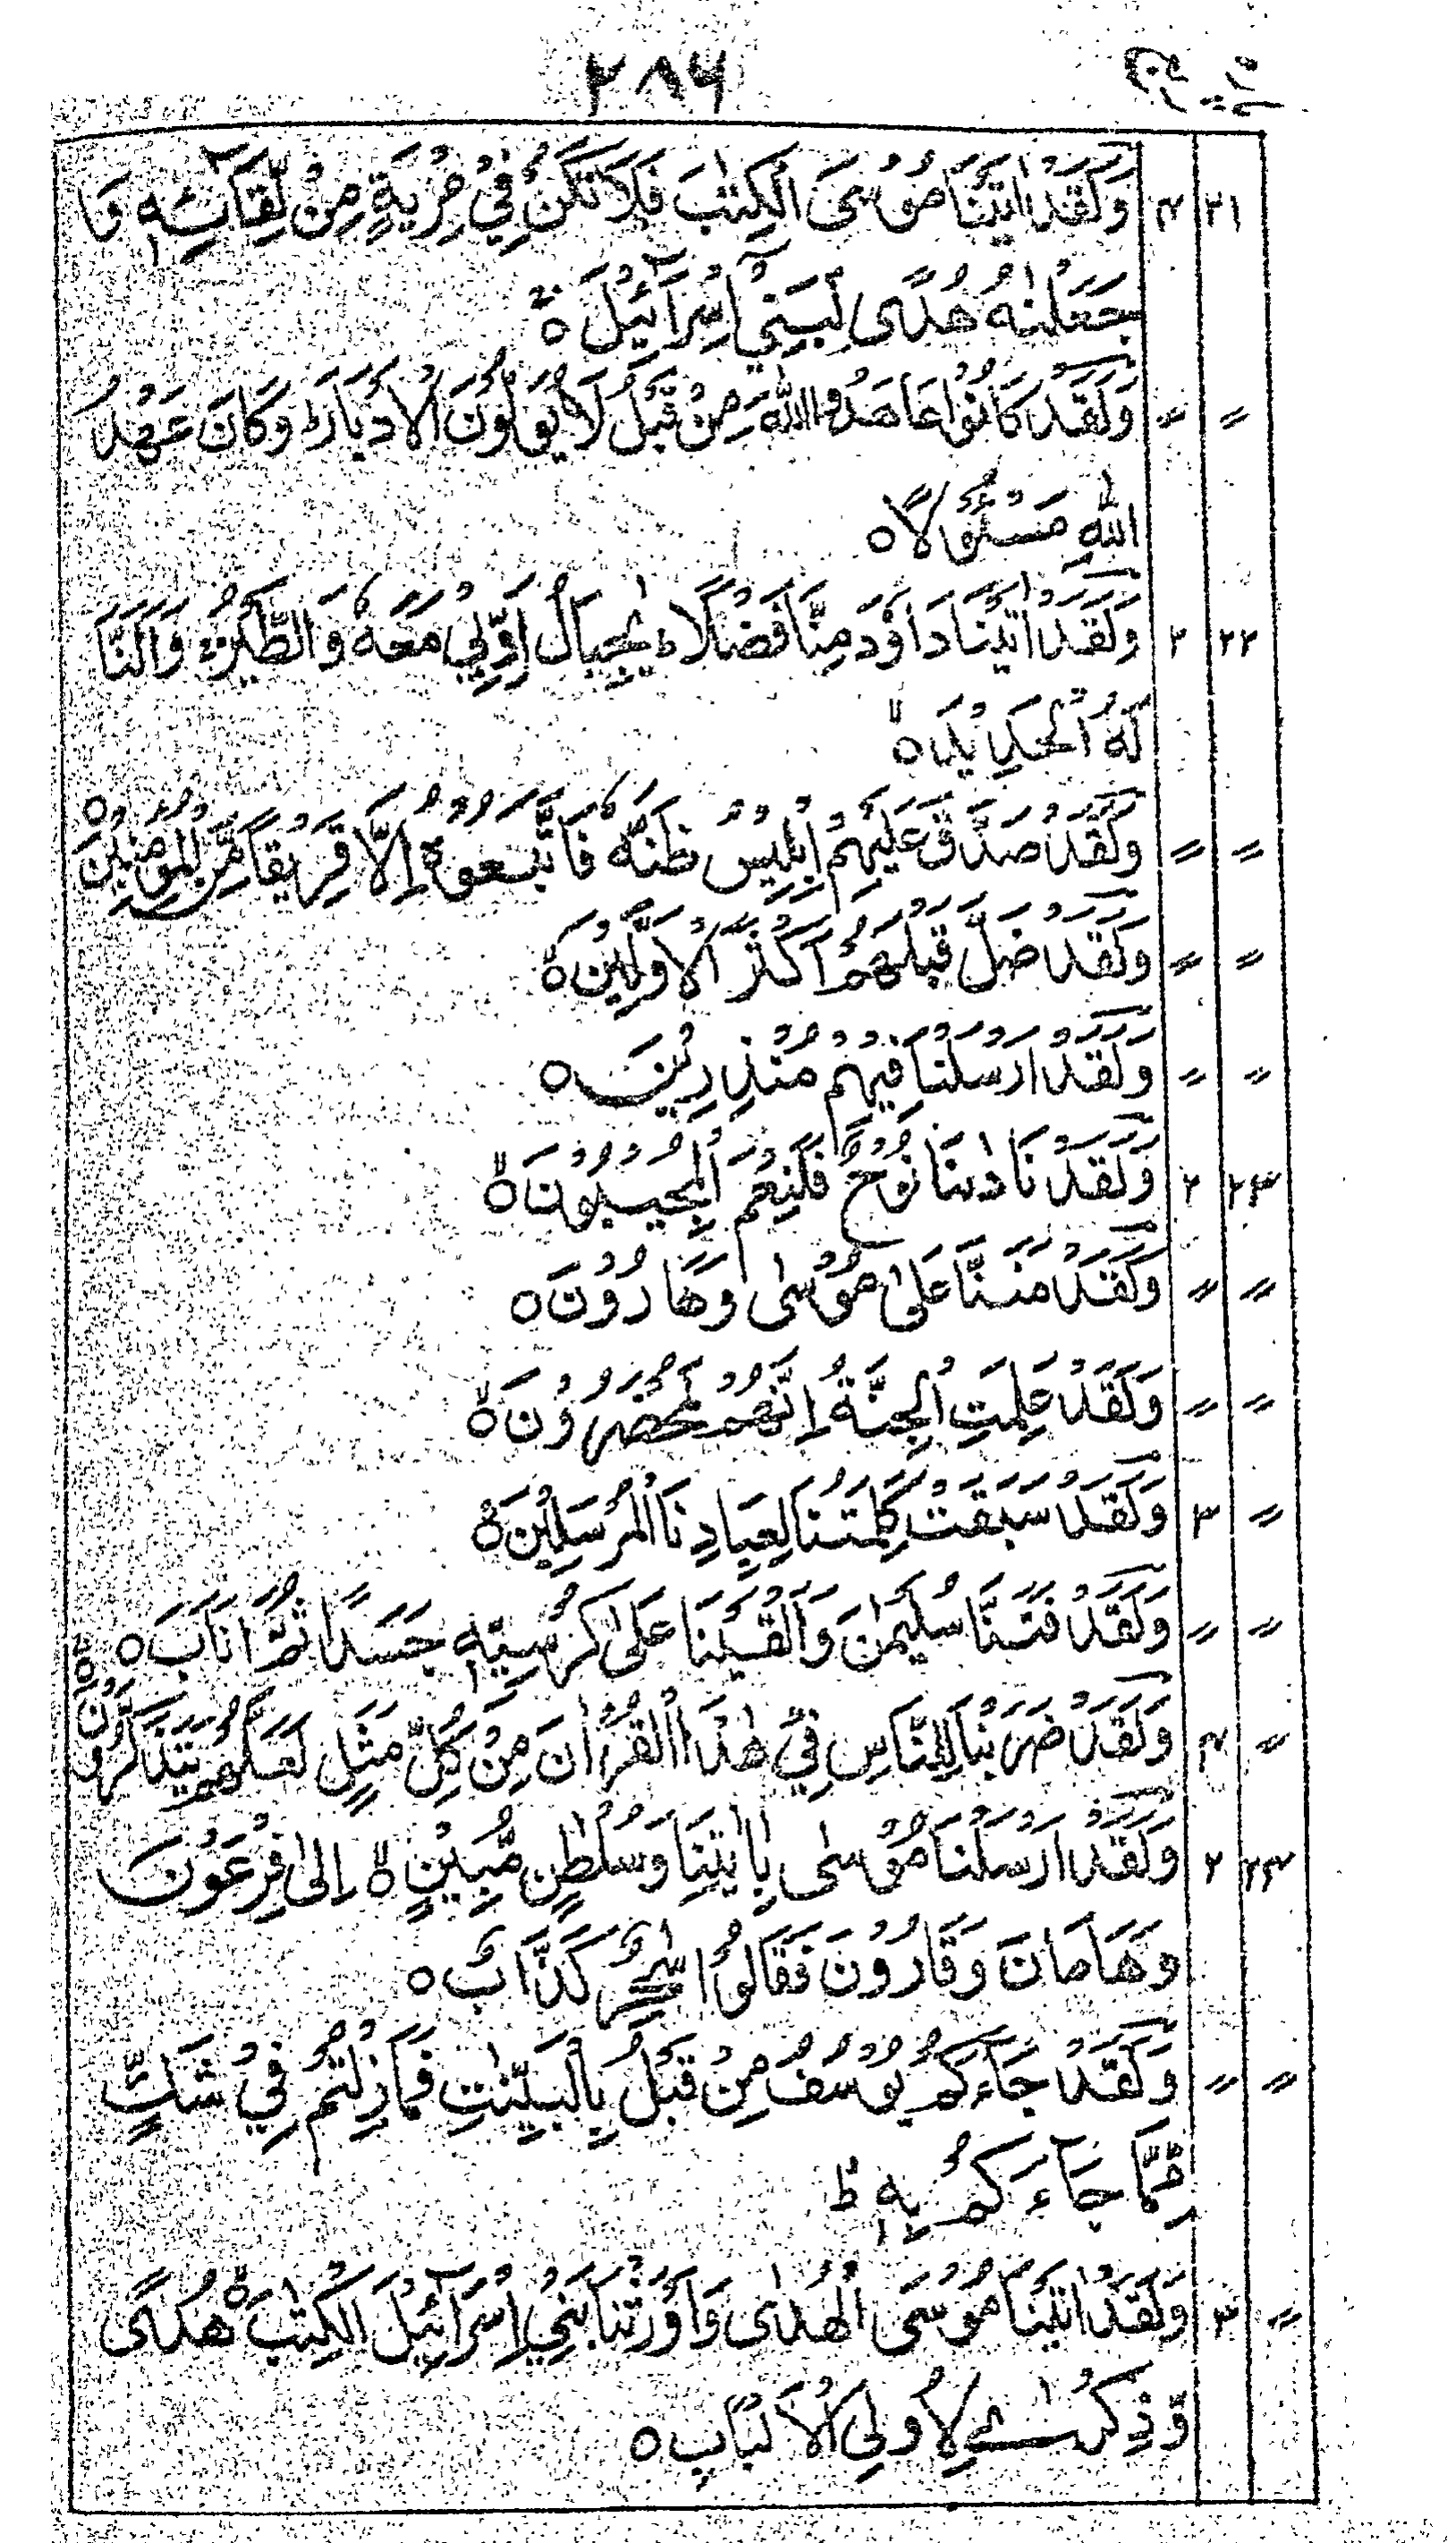 ۲۸۶
۲۱ ۴ وَلَقَدْ اٰتَيْنَا مُوْسَى الْكِتٰبَ فَلَا تَكُنْ فِيْ مِرْيَةٍ مِنْ لِّقَآئِهٖ وَ
جَعَلْنٰهُ هُدًى لِّبَنِيْٓ اِسْرَآئِيْلَ ۝
〃 〃 وَلَقَدْ كَانُوْا عَاهَدُوا اللّٰهَ مِنْ قَبْلُ لَا يُوَلُّوْنَ الْاَدْبَارَ ؕ وَكَانَ عَهْدُ
اللّٰهِ مَسْئُوْلًا ۝
۲۲ ۲ وَلَقَدْ اٰتَيْنَا دَاوٗدَ مِنَّا فَضْلًا ؕ يٰجِبَالُ اَوِّبِيْ مَعَهٗ وَالطَّيْرَ ۚ وَاَلَنَّا
لَهُ الْحَدِيْدَ ۝
〃 〃 وَلَقَدْ صَدَّقَ عَلَيْهِمْ اِبْلِيْسُ ظَنَّهٗ فَاتَّبَعُوْهُ اِلَّا فَرِيْقًا مِّنَ الْمُؤْمِنِيْنَ ۝
〃 〃 وَلَقَدْ ضَلَّ قَبْلَهُمْ اَكْثَرُ الْاَوَّلِيْنَ ۝
〃 〃 وَلَقَدْ اَرْسَلْنَا فِيْهِمْ مُنْذِرِيْنَ ۝
۲۳ ۲ وَلَقَدْ نَادٰىنَا نُوْحٌ فَلَنِعْمَ الْمُجِيْبُوْنَ ۝
〃 〃 وَلَقَدْ مَنَنَّا عَلٰى مُوْسٰى وَهَارُوْنَ ۝
〃 〃 وَلَقَدْ عَلِمَتِ الْجِنَّةُ اِنَّهُمْ لَمُحْضَرُوْنَ ۝
〃 ۳ وَلَقَدْ سَبَقَتْ كَلِمَتُنَا لِعِبَادِنَا الْمُرْسَلِيْنَ ۝
〃 〃 وَلَقَدْ فَتَنَّا سُلَيْمٰنَ وَاَلْقَيْنَا عَلٰى كُرْسِيِّهٖ جَسَدًا ثُمَّ اَنَابَ ۝
〃 ۴ وَلَقَدْ ضَرَبْنَا لِلنَّاسِ فِيْ هٰذَا الْقُرْاٰنَ مِنْ كُلِّ مَثَلٍ لَعَلَّهُمْ يَتَذَكَّرُوْنَ ۝
۲۴ ۲ وَلَقَدْ اَرْسَلْنَا مُوْسٰى بِاٰيٰتِنَا وَسُلْطٰنٍ مُّبِيْنٍ ۝ اِلٰى فِرْعَوْنَ
وَهَامَانَ وَقَارُوْنَ فَقَالُوْا سٰحِرٌ كَذَّابٌ ۝
〃 〃 وَلَقَدْ جَآءَكُمْ يُوْسُفُ مِنْ قَبْلُ بِالْبَيِّنٰتِ فَمَازِلْتُمْ فِيْ شَكٍّ
مِّمَّا جَآءَكُمْ بِهٖ ؕ
〃 ۳ وَلَقَدْ اٰتَيْنَا مُوْسَى الْهُدٰى وَاَوْرَثْنَا بَنِيْ اِسْرَآئِيْلَ الْكِتٰبَ ۝ هُدًى
وَّذِكْرٰى لِاُولِى الْاَلْبَابِ ۝